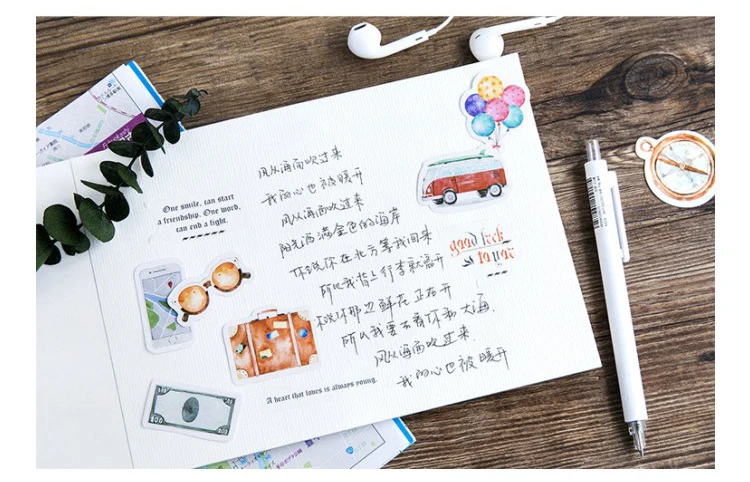 风从海面吹过来
我的心也被暖开
风从海面吹过来
阳光洒满金色的海岸
你说你在北方等我回来
所以我背上行李就离开
你说你那边鲜花正在开
所以我要去看你和大海.
风从海面吹过来.
我的心也被暖开
One smile, can start
a friendship. One word.
can end a fight.
good luck
to you
A heart that loves is always young.
100 100